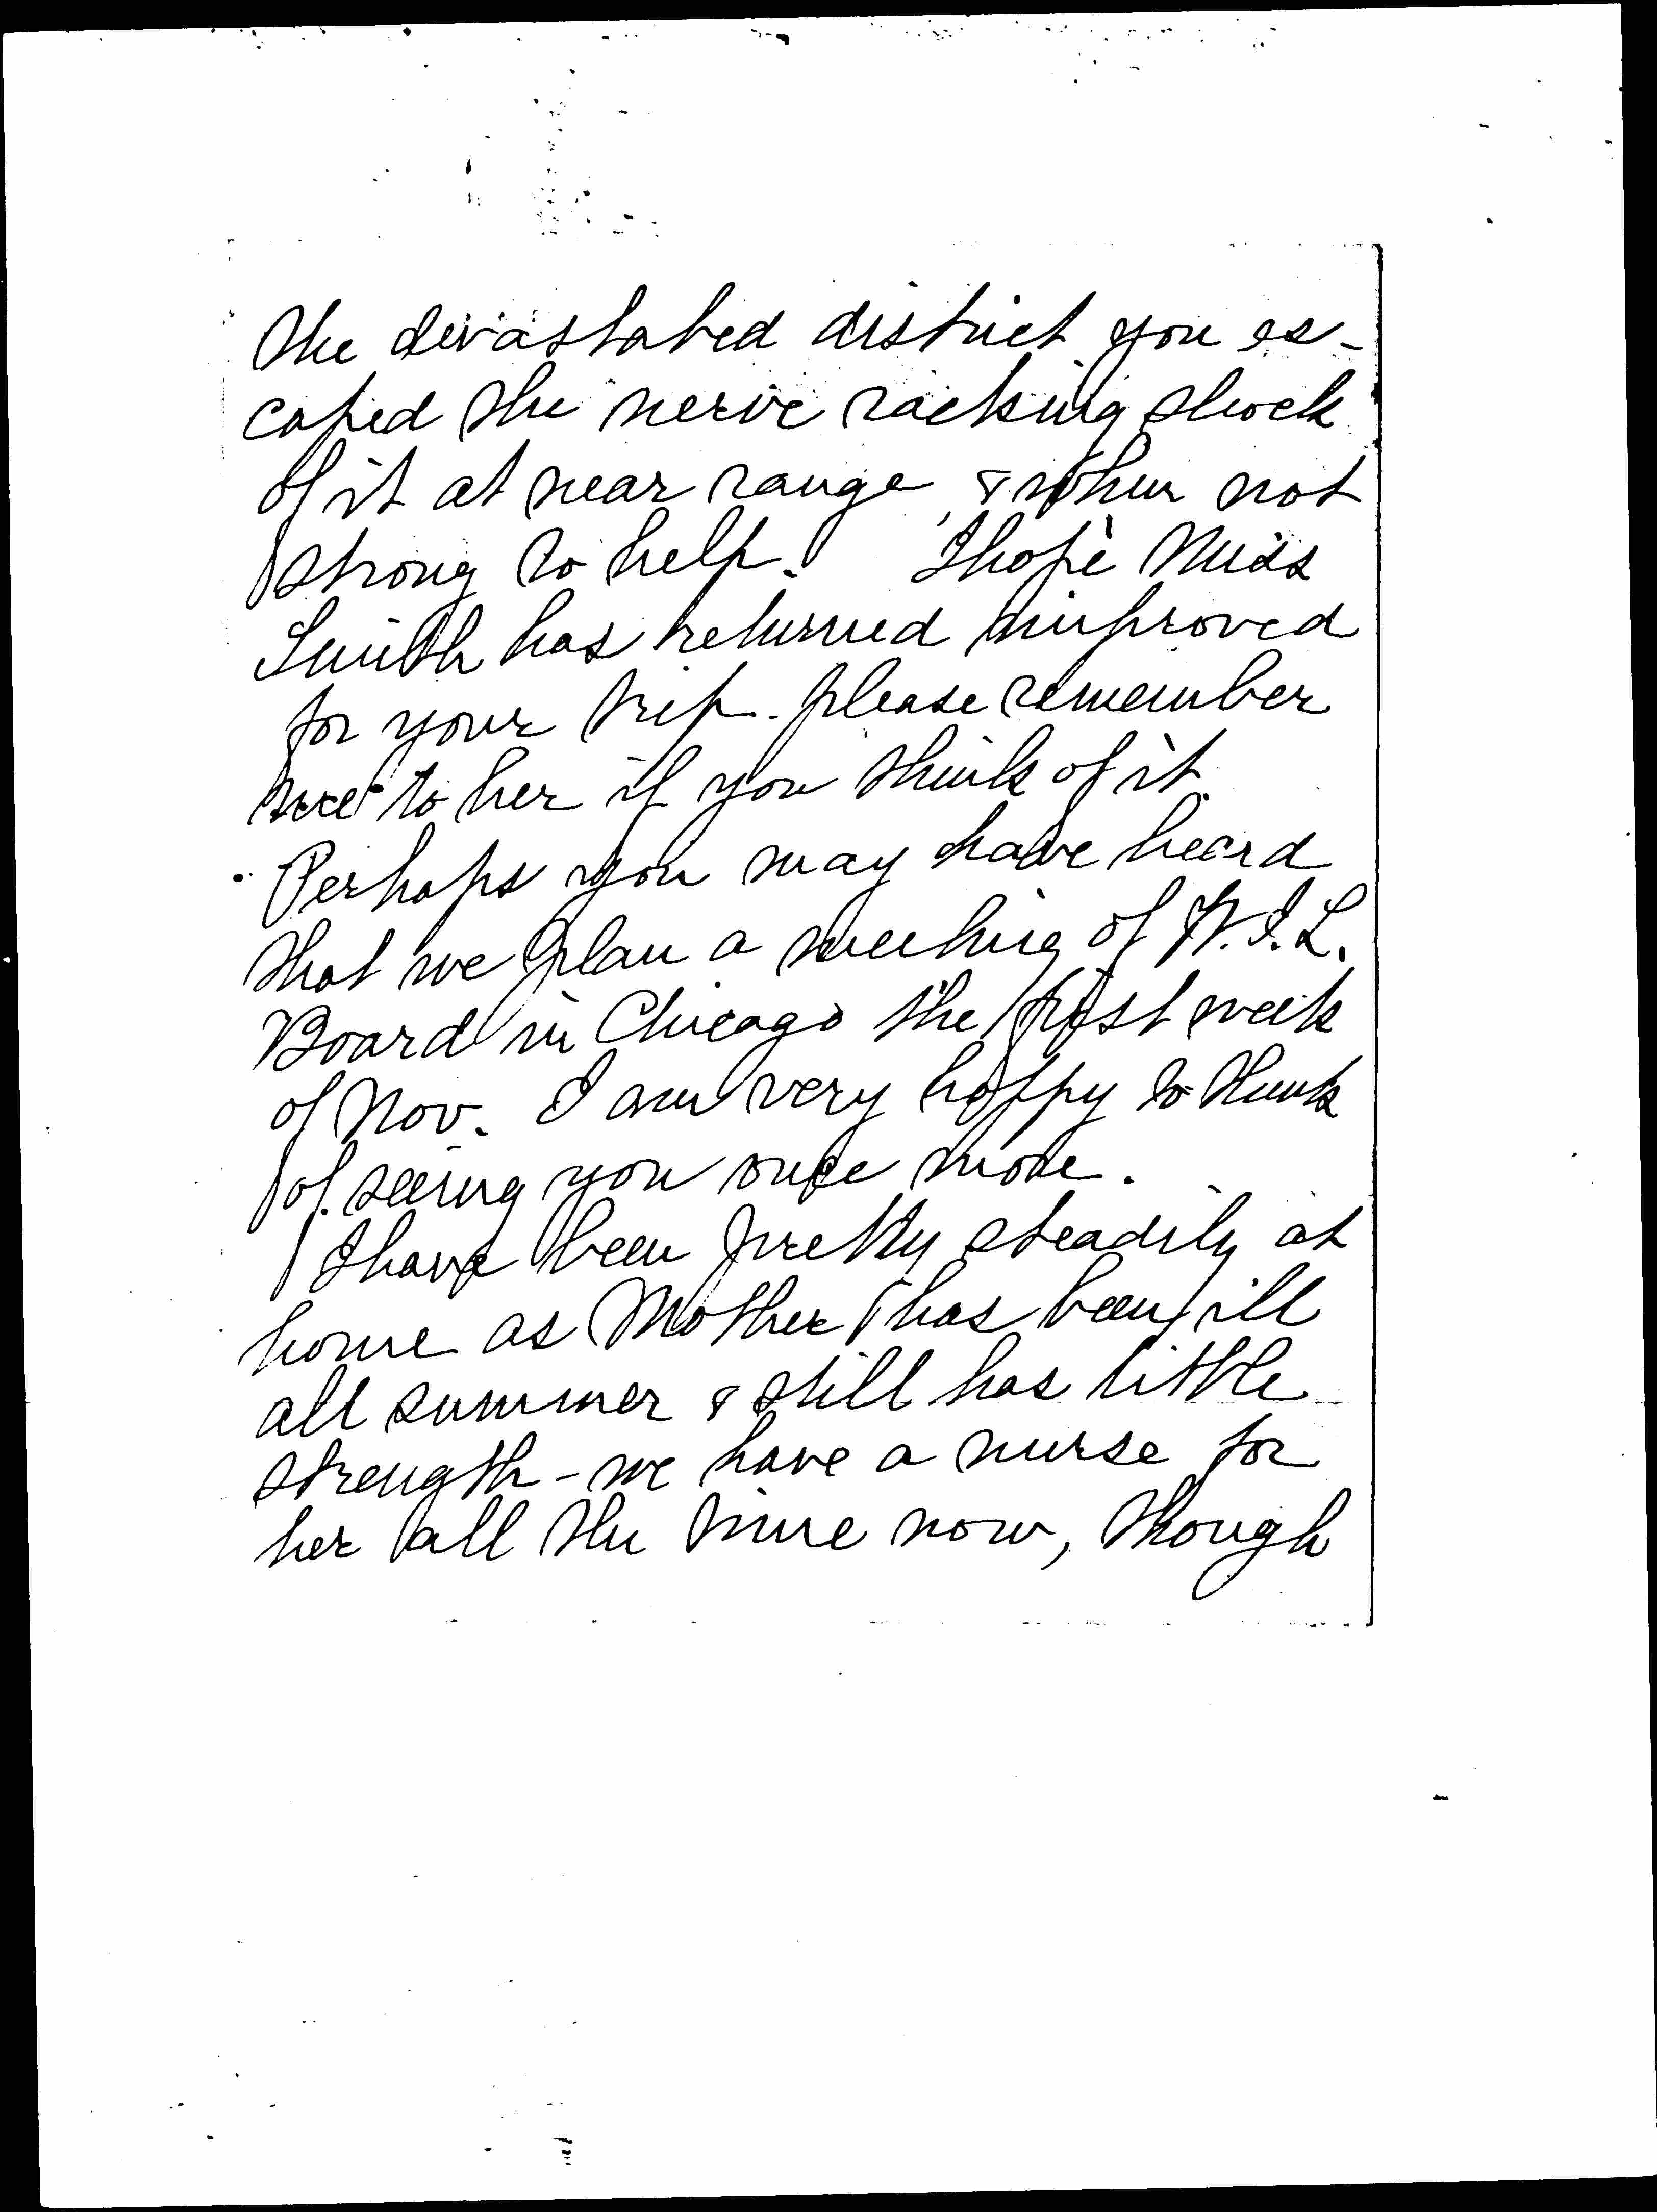 the devastated district you es-
caped the nerve racking shock
of it at near range, & when not
strong to help. I hope Miss
Smith has returned improved
for your trip. please remember
me to her if you think of it.
Perhaps you may have heard
that we plan a meeting of W.I.L.
Board in Chicago the first week
of Nov. I am very happy to think
of seeing you once more.
I have been pretty steadily at
home as Mother has been ill
all summer & still has little
strength - we have a nurse for
her all the time now, though